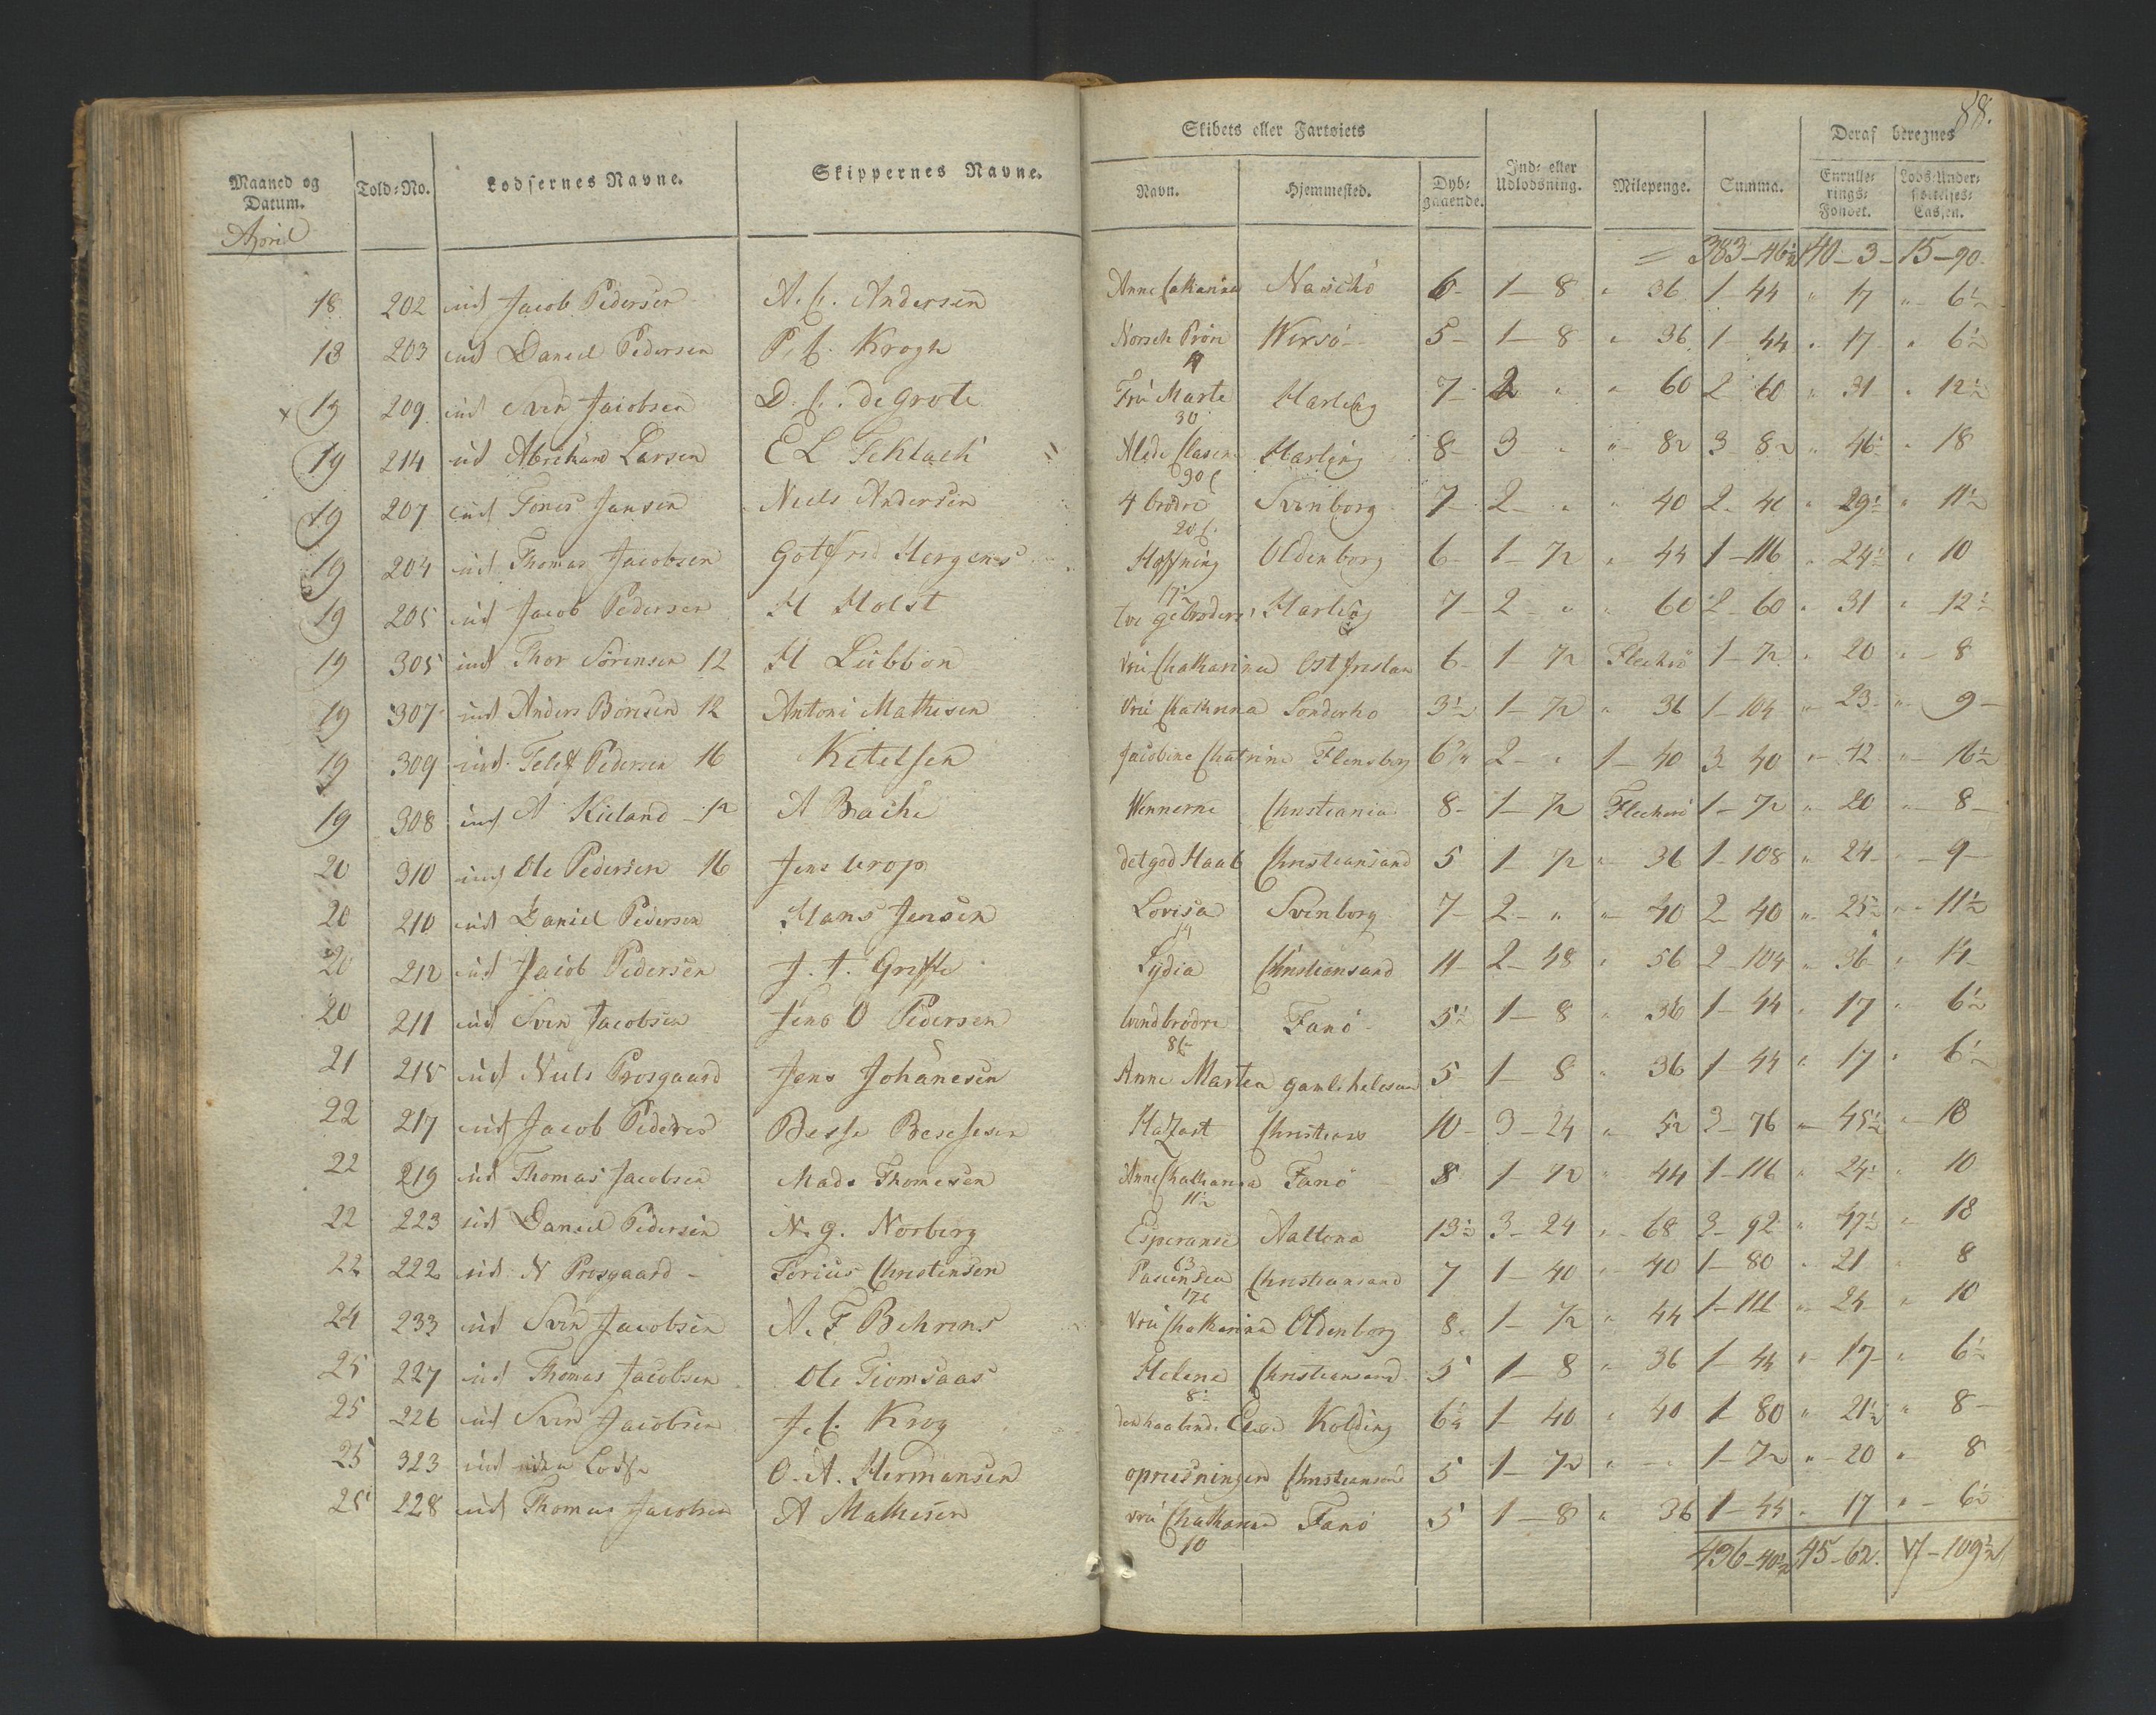 88.
Skibets eller Fartøiets
Deraf beregnes
Maaned og Datum. Told-No. Lodsernes Navne. Skippernes Navne. Navn. Hjemmested. Dybgaaende. Ind- eller Udlodsning. Milepenge. Summa. Enrullerings-Fondet. Lods-Understøttelses-Cassen.
April
383-46½ 40-3- 15-90
18 202 ind Jacob Pedersen A. C. Andersen Anne Catharina 6- 1-8 " 36 1-44 " 17 " 6½
18 203 ind Daniel Pedersen P. C. Krogh Norsch Prøve Wersö 5- 1-8 " 36 1 44 " 17 " 6½
x 19 209 ind Sven Jacobsen D. C. de Grote Fru Marte Harling 7- 2 " " 60 2 60 " 31 " 12½
30
19 214 ud Larsen E L Harling 8- 3 " " 82 3 82 " 46½ " 18
30 C
19 207 ind Tönes Jansen Niels Andersen 4 brödre Svinborg 7- 2- " " 40 2- 40 " 29½ " 11½
20 C.
19 204 ind Thomas Jacobsen Gotfred Hergens Hoffning Oldenborg 6- 1-72 " 44 1-116 " 24½ " 10
19 205 ind Jacob Pedersen H Holst tve gebrödere Harling 7- 2- " " 60 2-60 " 31 " 12½
19 305 ind Thor Sörensen 12 H Lübben Vrü Chatharina Ostfrislan 6- 1-72 Flecherö 1-72 " 20 " 8
19 307 ind Anders Böresen 12 Antoni Mathisen Vrü Chatrina Sönderho 3½ 1-72 " 36 1-104 " 23 " 9-
19 309 ind Telef Pedersen 16 Ketelsen Jacobine Chatrine Flensborg 6½ 2- " 1-40 3 40 " 42 " 16½
19 308 ind A Kieland - 12 A Bache Wennerne Christiania 8- 1-72 Flecherö 1-72 " 20 " 8-
20 310 ind Ole Pedersen 16 Jens det god Haab Christiansand 5 1-72 " 36 1-108 " 24 " 9-
20 210 ud Daniel Pedersen Hans Jensen Lovisa Svinborg 7- 2- " " 40 2 40 " 25½ " 11½
14
20 212 ud Jacob Pedersen J. J. Lydia Christiansand 11- 2-48 " 56 2-104 " 36 " 14-
20 211 ud Sven Jacobsen Jens O Pedersen tvendbrödre Fanö 5½ 1-8 " 36 1-44 " 17 " 6½
8 C
21 215 ud Niels Prosgaard Jens Johanesen Anne Martea 5 1-8 " 36 1-44 " 17 " 6½
22 217 ud Jacob Pedersen Besse Besesen Christians 10- 3-24 " 52 3-76 " 45½ " 18
22 219 ud Thomas Jacobsen Mads Thomesen Anne Chatharina Fanö 8 1-72 " 44 1-116 " 24½ " 10
11½
22 223 ud Daniel Pedersen N. g. Norberg Esperanse Aaltona 13½ 3-24 " 68 3-92 " 47½ " 18
63
22 222 ud N Prosgaard - Terius Christensen Christiansand 7 1-40 " 40 1-80 " 21 " 8
17 C
24 233 ud Sven Jacobsen A. F Behrens Vrü Chatharina Oldenborg 8. 1-72 " 44 1-116 " 24 " 10
25 227 ud Thomas Jacobsen Ole Tiomsaas Helene Christiansand 5 1-8 " 36 1-44 " 17- " 6½
8½
25 226 ud Sven Jacobsen J. C. Krog den haabende Kolding 6½ 1-40 " 40 1-80 " 21½ " 8-
25 323 ind uden Lodse O. A. Hermansen opreisningen Christiansand 5 1-72 " " 1-72 " 20 " 8
25 228 ud Thomas Jacobsen A Mathisen Vrü Chatharina Fanö 5 1-8 " 36 1-44 " 17 " 6½
10
436-40½ 45-62. 17-109½